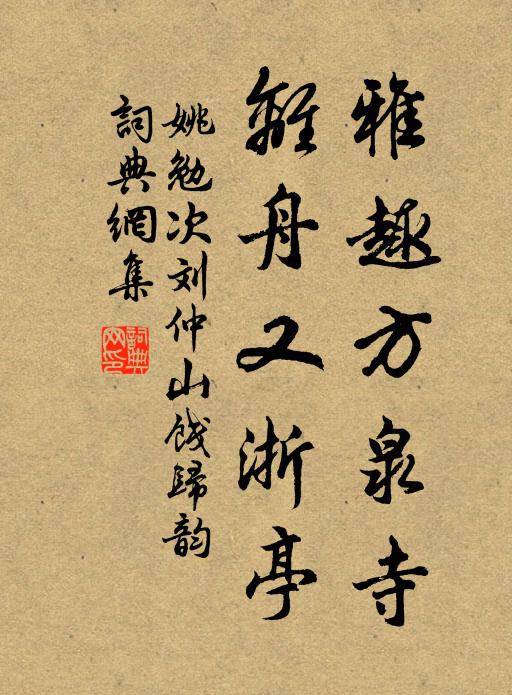 雅趣方泉寺
離舟又浙亭
姚勉次刘仲山餞歸韵
詞典網集
詞典网印